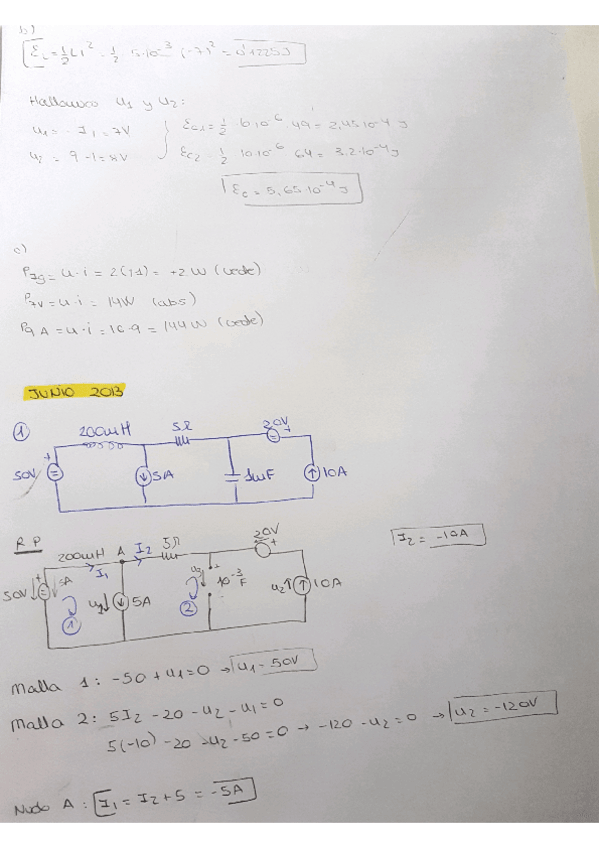 b)
Ɛ_L = 1/2 L i² = 1/2 · 5·10⁻³ (-7)² = 0'1225J
Hallamos u₁ y u₂:
u₁ = - I₁ = 7V
Ɛc₁ = 1/2 · 10·10⁻⁶ · 49 = 2,45·10⁻⁴ J
u₂ = 9 - 1 = 8V
Ɛc₂ = 1/2 10·10⁻⁶ · 64 = 3.2·10⁻⁴ J
Ɛc = 5,65·10⁻⁴ J
c)
= u·i = 2(1·1) = +2 W (cede)
P₇V = u·i = 14W (abs)
P₉A = u·i = 16·9 = 144 W (cede)
JUNIO 2013
①
200mH
5Ω
20V
+
+
50V
5A
10A
R P
200mH A I₂ 5Ω
20V
+
I₂ = -10A
I₁
50V
+
5A
5A
①
②
10⁻³ F
u₂
10A
Malla 1: -50 + u₁ = 0 → u₁ = 50V
Malla 2: 5I₂ - 20 - u₂ - u₁ = 0
5(-10) - 20 - u₂ - 50 = 0 → -120 - u₂ = 0 → u₂ = -120V
Nudo A: I₁ = I₂ + 5 = -5A